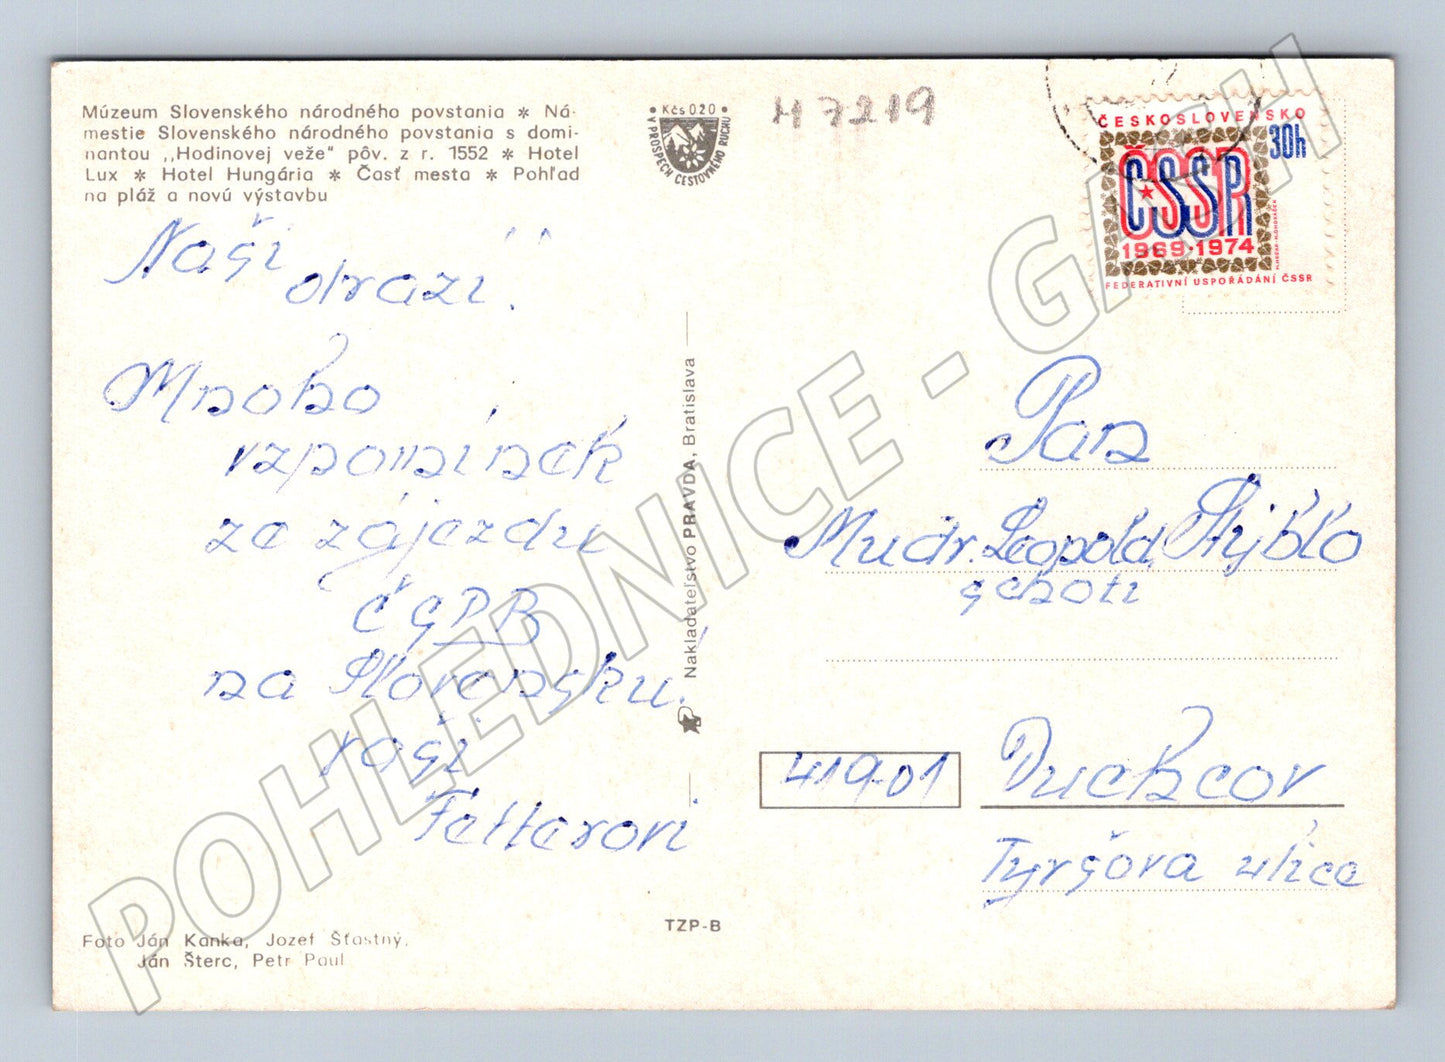 Múzeum Slovenského národného povstania ✻ Ná-
mestie Slovenského národného povstania s domi-
nantou ,,Hodinovej veže" pôv. z r. 1552 ✻ Hotel
Lux ✻ Hotel Hungária ✻ Časť mesta ✻ Pohľad
na pláž a novú výstavbu
• Kčs 020 •
V PROSPECH CESTOVNÉHO RUCHU
H 7219
ČESKOSLOVENSKO
30h
ČSSR
1969·1974
FEDERATIVNÍ USPOŘÁDÁNÍ ČSSR
Naši
drazí!
Mnoho
vzpomínek
ze zájezdu
ČSPB
na Slovensku.
vaši
Fettarovi
Nakladateľstvo PRAVDA, Bratislava
Pan
Mudr. Leopold Stýblo
s chotí
419 01
Duchcov
Tyršova ulice
TZP-B
Foto Ján Kanka, Jozef Šťastný,
Ján Šterc, Petr Paul
POHLEDNICE - GASH